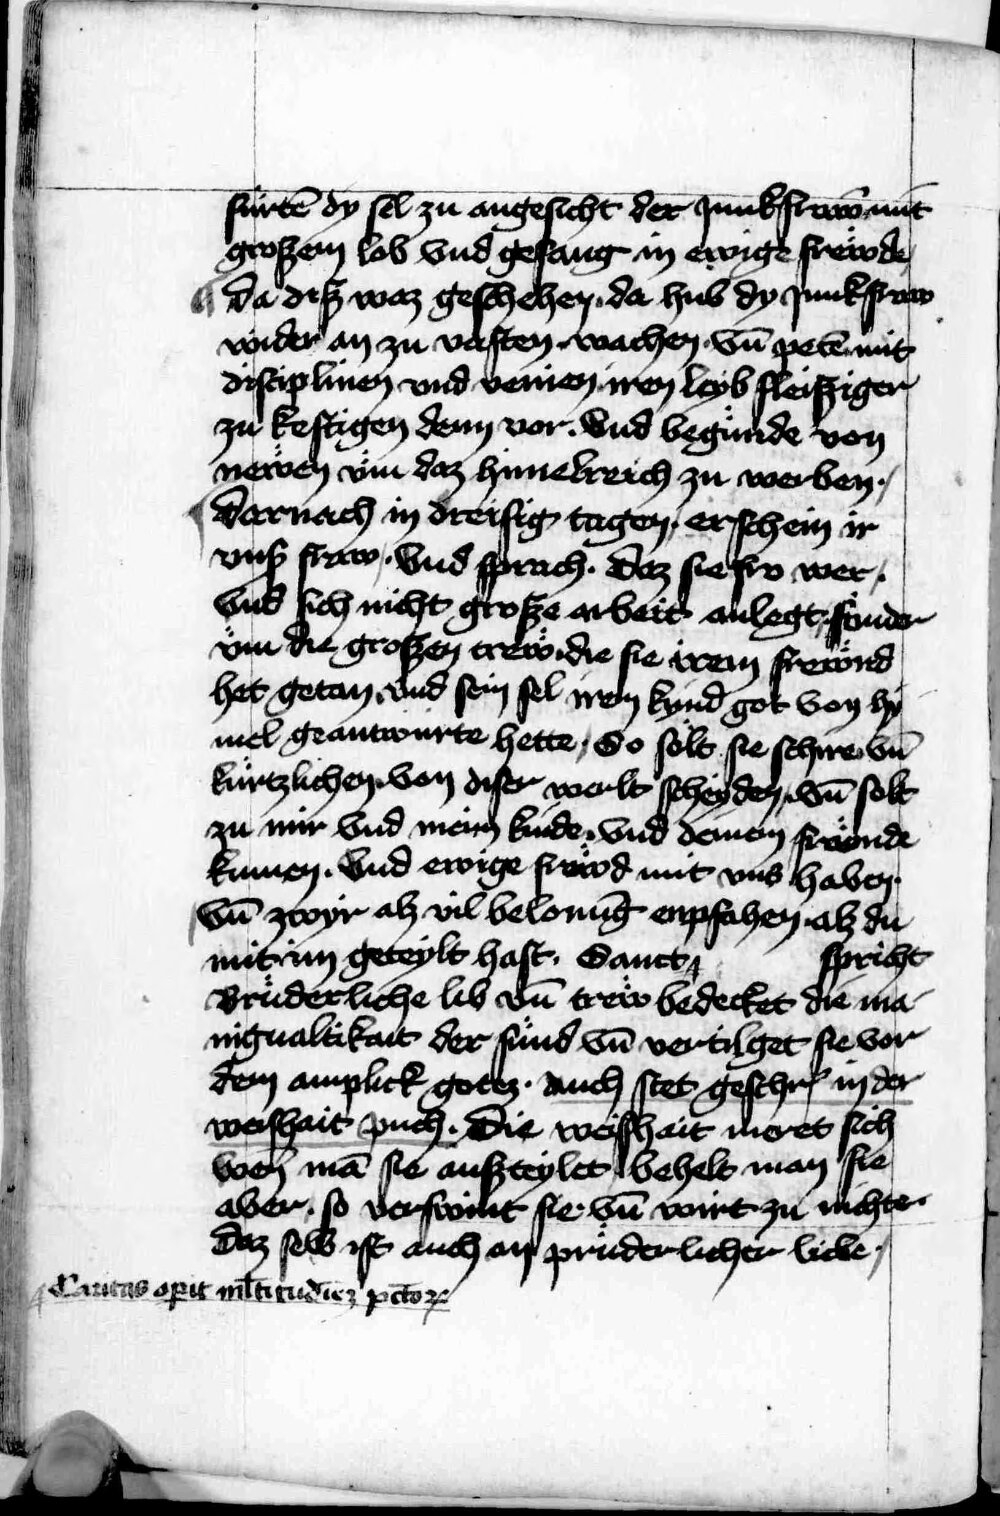 fürtē dy sel zu angesicht der Junkfraw̄ mit
groszem lob vnd gesang in ewige frewde
Da disz waz geschehen. da hub dy Junkfraw
wider an zu vasten. wachen. vn̄ petē mit
disciplinen vnd venien iren leyb fleisziger
zu kestigen denn vor. Vnd begünde von
newen vm daz himelreich zu werben.
Darnach in dreisig tagen. erschein ir
vnsz fraw. Vnd sprach. Daz sie fro wer.
Vnd sich nicht grosze arbeit anlegt. sünder
vm die groszen trew. die sie irem frewnd
het getan. vnd sein sel irem kynd got von hy
mel geantwürte hette. So solt sie schire vn̄
kürtzlichen. von diser werlt scheyden. vn̄ solt
zu mir vnd meim kinde. vnd deinem frewnde
kumen. Vnd ewige frewd mit vns haben.
Vn̄ zwyr alz vil belonūg enpfahen alz du
mit im geteylt hast. Sanct spricht
Brüderliche lib vn̄ trew bedecket die ma
nigualtikait der sünd vn̄ vertilget sie vor
dem anplick gotez. auch stet geschrⁱ in der
weishait puch. Die weishait meret sich
wen̄ mā sie auszteylet behelt man sie
aber. so verswint sie. vn̄ wirt zu nichte
Daz selb ist auch an prüderlicher liebe.
Caritas opit ml̄titudiēz pctōꝝ